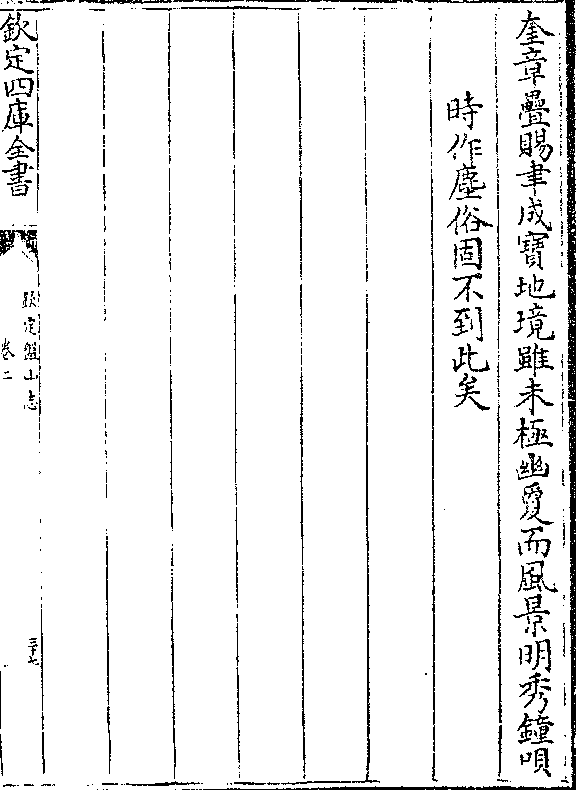 奎章疊賜聿成寶地境雖未極幽夐而風景明秀鐘唄
時作塵俗固不到此矣
欽定四庫全書
欽定盤山志
卷二
三十七